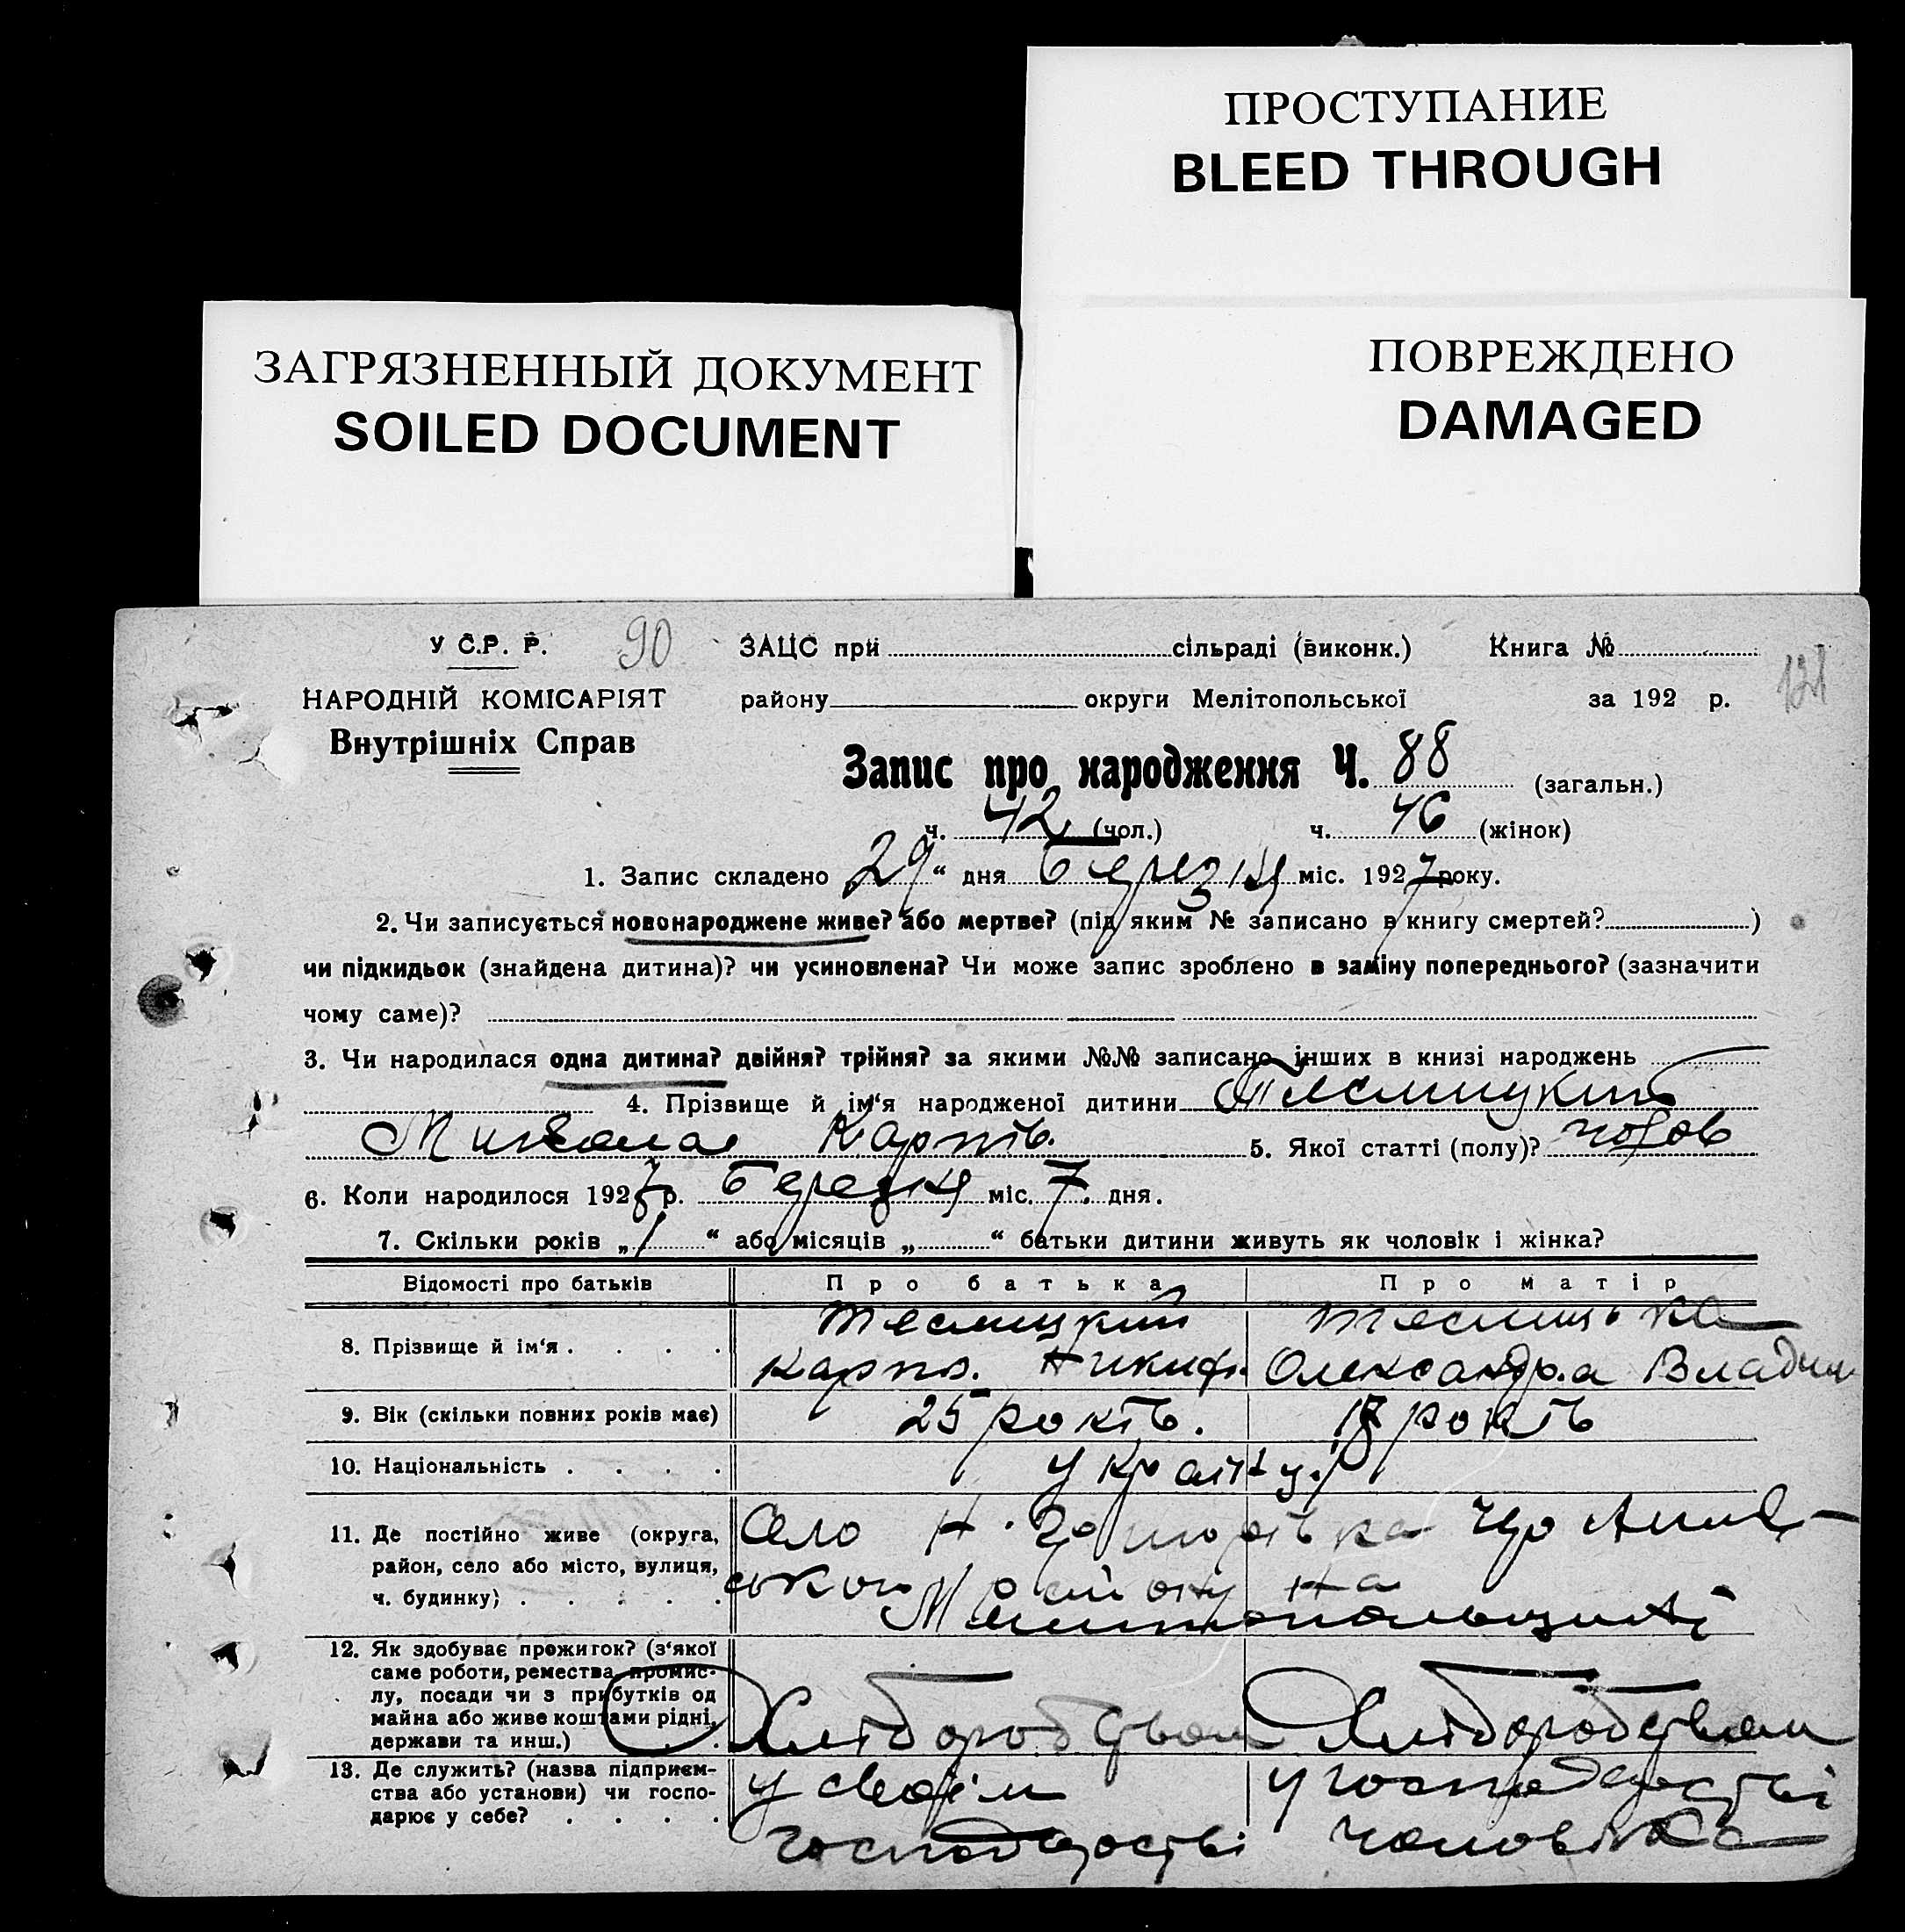 ПРОСТУПАНИЕ
BLEED THROUGH
ЗАГРЯЗНЕННЫЙ ДОКУМЕНТ
SOILED DOCUMENT
ПОВРЕЖДЕНО
DAMAGED
У С.Р. Р. 90 ЗАЦС при сільраді (виконк.) Книга № 121
НАРОДНІЙ КОМІСАРІЯТ району округи Мелітопольської за 192 р.
Внутрішніх Справ
Запис про народження Ч. 88 (загальн.)
ч. 42 (чол.) ч. 46 (жінок)
1. Запис складено 29 “ дня березня міс. 1927 року.
2. Чи записується новонароджене живе? або мертве? (під яким № записано в книгу смертей? )
чи підкидьок (знайдена дитина)? чи усиновлена? Чи може запис зроблено в заміну попереднього? (зазначити
чому саме)?
3. Чи народилася одна дитина? двійня? трійня? за якими №№ записано інших в книзі народжень
4. Прізвище й ім‘я народженої дитини Теслицкий
Микола Карпів. 5. Якої статті (полу)? чолов
6. Коли народилося 1927 р. Березня міс. 7. дня.
7. Скільки років „ 1 “ або місяців „ “ батьки дитини живуть як чоловік і жінка?
Відомості про батьків Про батька Про матір
8. Прізвище й ім‘я . . . . Теслицкий Теслицька
Карпо. Никиф. Олександра Владим
9. Вік (скільки повних років має) 25 років. років
10. Національність . . . . україн
11. Де постійно живе (округа, Село Н.
район, село або місто, вулиця, ського району на
ч. будинку) . . . . . Мелитопольщині
12. Як здобуває прожиток? (з‘якої
саме роботи, ремества, промис-
лу, посади чи з прибутків од
майна або живе коштами рідні, Хліборобством Хліборобством
держави та инш.) . .
13. Де служить? (назва підприєм- у своїм у господарстві
ства або установи) чи госпо-
дарює у себе? . . . . господарстві чоловіка